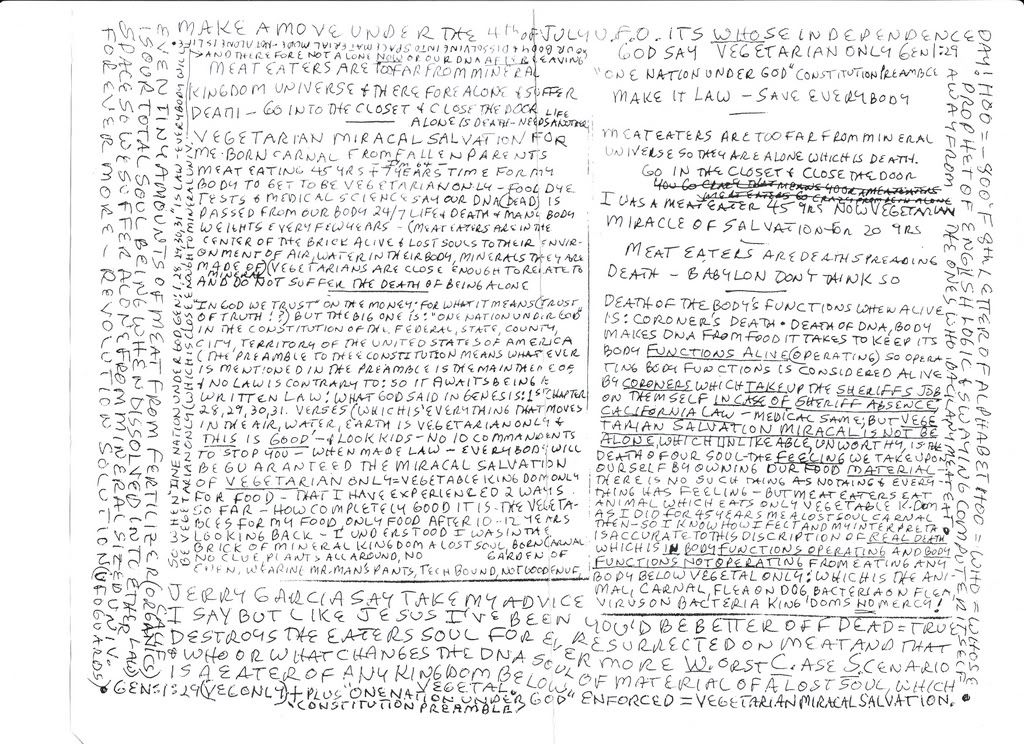 MAKE A MOVE UNDER THE 4th OF JULY U.F.O. ITS WHOSE INDEPENDENCE
DAY! HOO = -900°F 8th LETTER OF ALPHABET HOO = WHO = WHOSE
A PROPHET OF ENGLISH LOGIC & SWAYING COMPUTER ITSELF
AWAY FROM THE ONES WHO DAILY EAT MEAT
GOD SAY VEGETARIAN ONLY GEN 1:29
"ONE NATION UNDER GOD" CONSTITUTION PREAMBLE
MAKE IT LAW - SAVE EVERYBODY
MEAT EATERS ARE TOO FAR FROM MINERAL
UNIVERSE SO THEY ARE ALONE WHICH IS DEATH.
GO IN THE CLOSET & CLOSE THE DOOR
I WAS A MEAT EATER 45 YRS NOW VEGETARIAN
MIRACLE OF SALVATION for 20 YRS
MEAT EATERS ARE DERTH SPREADING
DEATH - BABYLON DON'T THINK SO
DEATH OF THE BODY'S FUNCTIONS WHEN ALIVE
IS: CORONER'S DEATH. DEATH OF DNA, BODY
MAKES DNA FROM FOOD IT TAKES TO KEEP ITS
BODY FUNCTIONS ALIVE (OPERATING) SO OPERA
TING BODY FUNCTIONS IS CONSIDERED ALIVE
BY CORONERS WHICH TAKE UP THE SHERIFFS JOB
ON THEMSELF IN CASE OF SHERIFF ABSENCE,
CALIFORNIA LAW - MEDICAL SAME; BUT VEGE
TARIAN SALVATION MIRACAL IS NOT BE
ALONE, WHICH UNLIKEABLE UNWORTHY IS THE
DEATH OF OUR SOUL - THE FEELING WE TAKE UPON
OURSELF BY OWNING OUR FOOD MATERIAL -
THERE IS NO SUCH THING AS NOTHING & EVERY -
THING HAS FEELING - BUT MEAT EATERS EAT
ANIMAL WHICH EATS ONLY VEGETABLE K.DOM
AS I DID FOR 45 YEARS ME A LOST SOUL CARNAL
THEN - SO I KNOW HOW I FELT AND MY INTERPRETA
IS ACCURATE TO THIS DISCRIPTION OF REAL DEATH
WHICH IS IN BODY FUNCTIONS OPERATING AND BODY
FUNCTIONS NOT OPERATING FROM EATING ANY
BODY BELOW VEGETAL ONLY: WHICH IS THE ANI-
MAL, CARNAL, FLEA ON DOG, BACTERIA ON FLEA,
VIRUS ON BACTERIA KING DOMS NO MERCY!
MEAT EATERS ARE TOO FAR FROM MINERAL
KINGDOM UNIVERSE & THEREFORE ALONE & SUFFER
DEATH - GO INTO THE CLOSET & CLOSE THE DOOR
ALONE IS DEATH - LIFE NEEDS ANOTHER
VEGETARIAN MIRACAL SALVATION FOR
ME. BORN CARNAL FROM FALLEN PARENTS
MEAT EATING 45 YRS + 7 YEARS TIME FOR MY
BODY TO GET TO BE VEGETARIAN ONLY - FOOD DYE
TESTS & MEDICAL SCIENCE SAY OUR DNA (DEAD) IS
PASSED FROM OUR BODY 24/7 LIFE & DEATH & MANY BODY
WEIGHTS EVERY FEW YEARS - (MEAT EATERS ARE IN THE
CENTER OF THE BRICK ALIVE & LOST SOULS TO THEIR ENVIR-
ONMENT OF AIR, WATER IN THEIR BODY, MINERALS THEY ARE
MADE OF) (VEGETARIANS ARE CLOSE ENOUGH TO RELATE TO
MINERAL
AND DO NOT SUFFER THE DEATH OF BEING ALONE
"IN GOD WE TRUST" ON THE MONEY: FOR WHAT IT MEANS (TRUST,
OF TRUTH!?) BUT THE BIG ONE IS: "ONE NATION UNDER GOD"
IN THE CONSTITUTION OF THE FEDERAL, STATE, COUNTY,
CITY, TERRITORY OF THE UNITED STATES OF AMERICA
(THE PREAMBLE TO THE CONSTITUTION MEANS WHAT EVER
IS MENTIONED IN THE PREAMBLE IS THE MAIN THEME OF
& NO LAW IS CONTRARY TO: SO IT AWAITS BEING A
WRITTEN LAW: WHAT GOD SAID IN GENESIS: 1st CHAPTER
28, 29, 30, 31. VERSES (WHICH IS EVERYTHING THAT MOVES
IN THE AIR, WATER, EARTH IS VEGETARIAN ONLY &
THIS IS GOOD - & LOOK KIDS - NO 10 COMMANDENTS
TO STOP YOU - WHEN MADE LAW - EVERYBODY WILL
BE GUARANTEED THE MIRACAL SALVATION
OF VEGETARIAN ONLY = VEGETABLE KINGDOM ONLY
FOR FOOD - THAT I HAVE EXPERIENCED 2 WAYS
SO FAR - HOW COMPLETELY GOOD IT IS - THE VEGETA-
BLES FOR MY FOOD, ONLY FOOD AFTER 10-12 YEARS
LOOKING BACK - I UNDERSTOOD I WAS IN THE
BRICK OF MINERAL KINGDOM A LOST SOUL, BORN CARNAL
NO CLUE PLANTS ALL AROUND, NO GARDEN OF
EDEN, WEARING MR. MAN'S PANTS, TECH BOUND, NOT GOOD ENUF,
SO WHEN IN THE NATION UNDER GOD GEN: 1, 28, 29, 30, 31" IS LAW - EVERYBODY WILL
BE VEGETARIAN ONLY (WHICH IS CLOSE ENOUGH TO MINERAL UNIV.
EVEN TINY AMOUNTS OF MEAT FROM FERTILIRE (ORGANICS)
IS OUR TOTAL SOUL BEING WHEN DISSOLVED INTO ETHER LAW)
SPACE SO WE SUFFER ALONE FROM MINERAL SIZED UNIV.
FOR EVER MORE - REVOLUTION SOLUTION (UFO GUARDS)
JERRY GARCIA SAY TAKE MY ADVICE
I SAY BUT LIKE JESUS I'VE BEEN YOU'D BE BETTER OFF DEAD = TRUE
DESTROYS THE EATERS SOUL FOR EVER, RESURRECTED ON MEAT AND THAT
& WHO OR WHAT CHANGES THE DNA SOUL EVER MORE WORST CASE SCENARIO
IS A EATER OF ANY KINGDOM BELOW VEGETAL OF MATERIAL OF A LOST SOUL, WHICH
• GEN: 1:29 (VEG ONLY) + PLUS "ONE NATION UNDER GOD" ENFORCED = VEGETARIAN MIRACAL SALVATION.
CONSTITUTION PREAMBLE